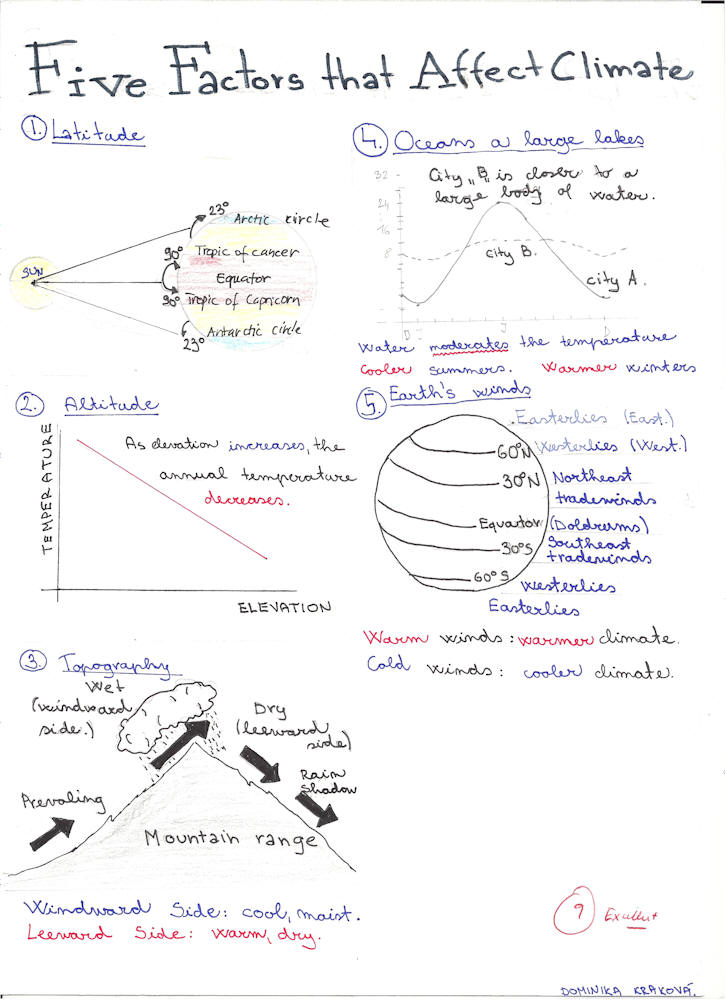 Five Factors that Affect Climate
1. Latitude
SUN
23°
Arctic circle
90°
Tropic of cancer
Equator
90°
Tropic of Capricorn
Antarctic circle
23°
2. Altitude
TEMPERATURE
As elevation increases, the
annual temperature
decreases.
ELEVATION
3. Topography
Wet
(windward
side.)
Dry
(leeward
side)
Rain
Shadow
Prevaling
Mountain range
Windward Side: cool, moist.
Leeward Side: warm, dry.
4. Oceans a large lakes
City „B" is closer to a
large body of water.
32
24
16
8
City B.
City A.
D
J
D
Water moderates the temperature
Cooler summers. Warmer winters
5. Earth's winds
Easterlies (East.)
60°N
Westerlies (West.)
30°N
Northeast
tradewinds
Equator
(Doldrums)
30°S
Southeast
tradewinds
60°S
Westerlies
Easterlies
Warm winds: warmer climate.
Cold winds: cooler climate.
9
Excellent
DOMINIKA KRAKOVÁ.